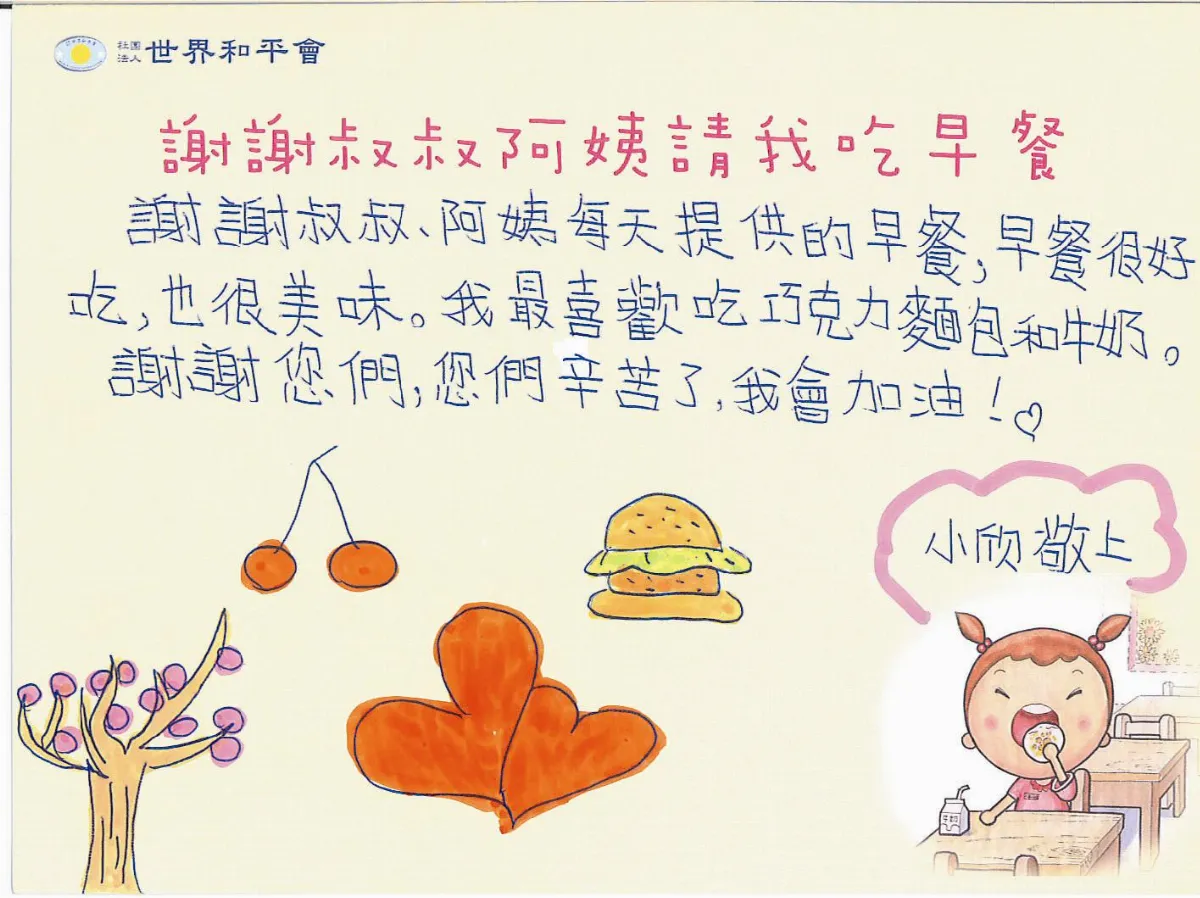 社團法人 世界和平會
謝謝叔叔阿姨請我吃早餐
謝謝叔叔、阿姨每天提供的早餐,早餐很好
吃,也很美味。我最喜歡吃巧克力麵包和牛奶。
謝謝您們,您們辛苦了,我會加油!♡
小欣敬上
牛奶